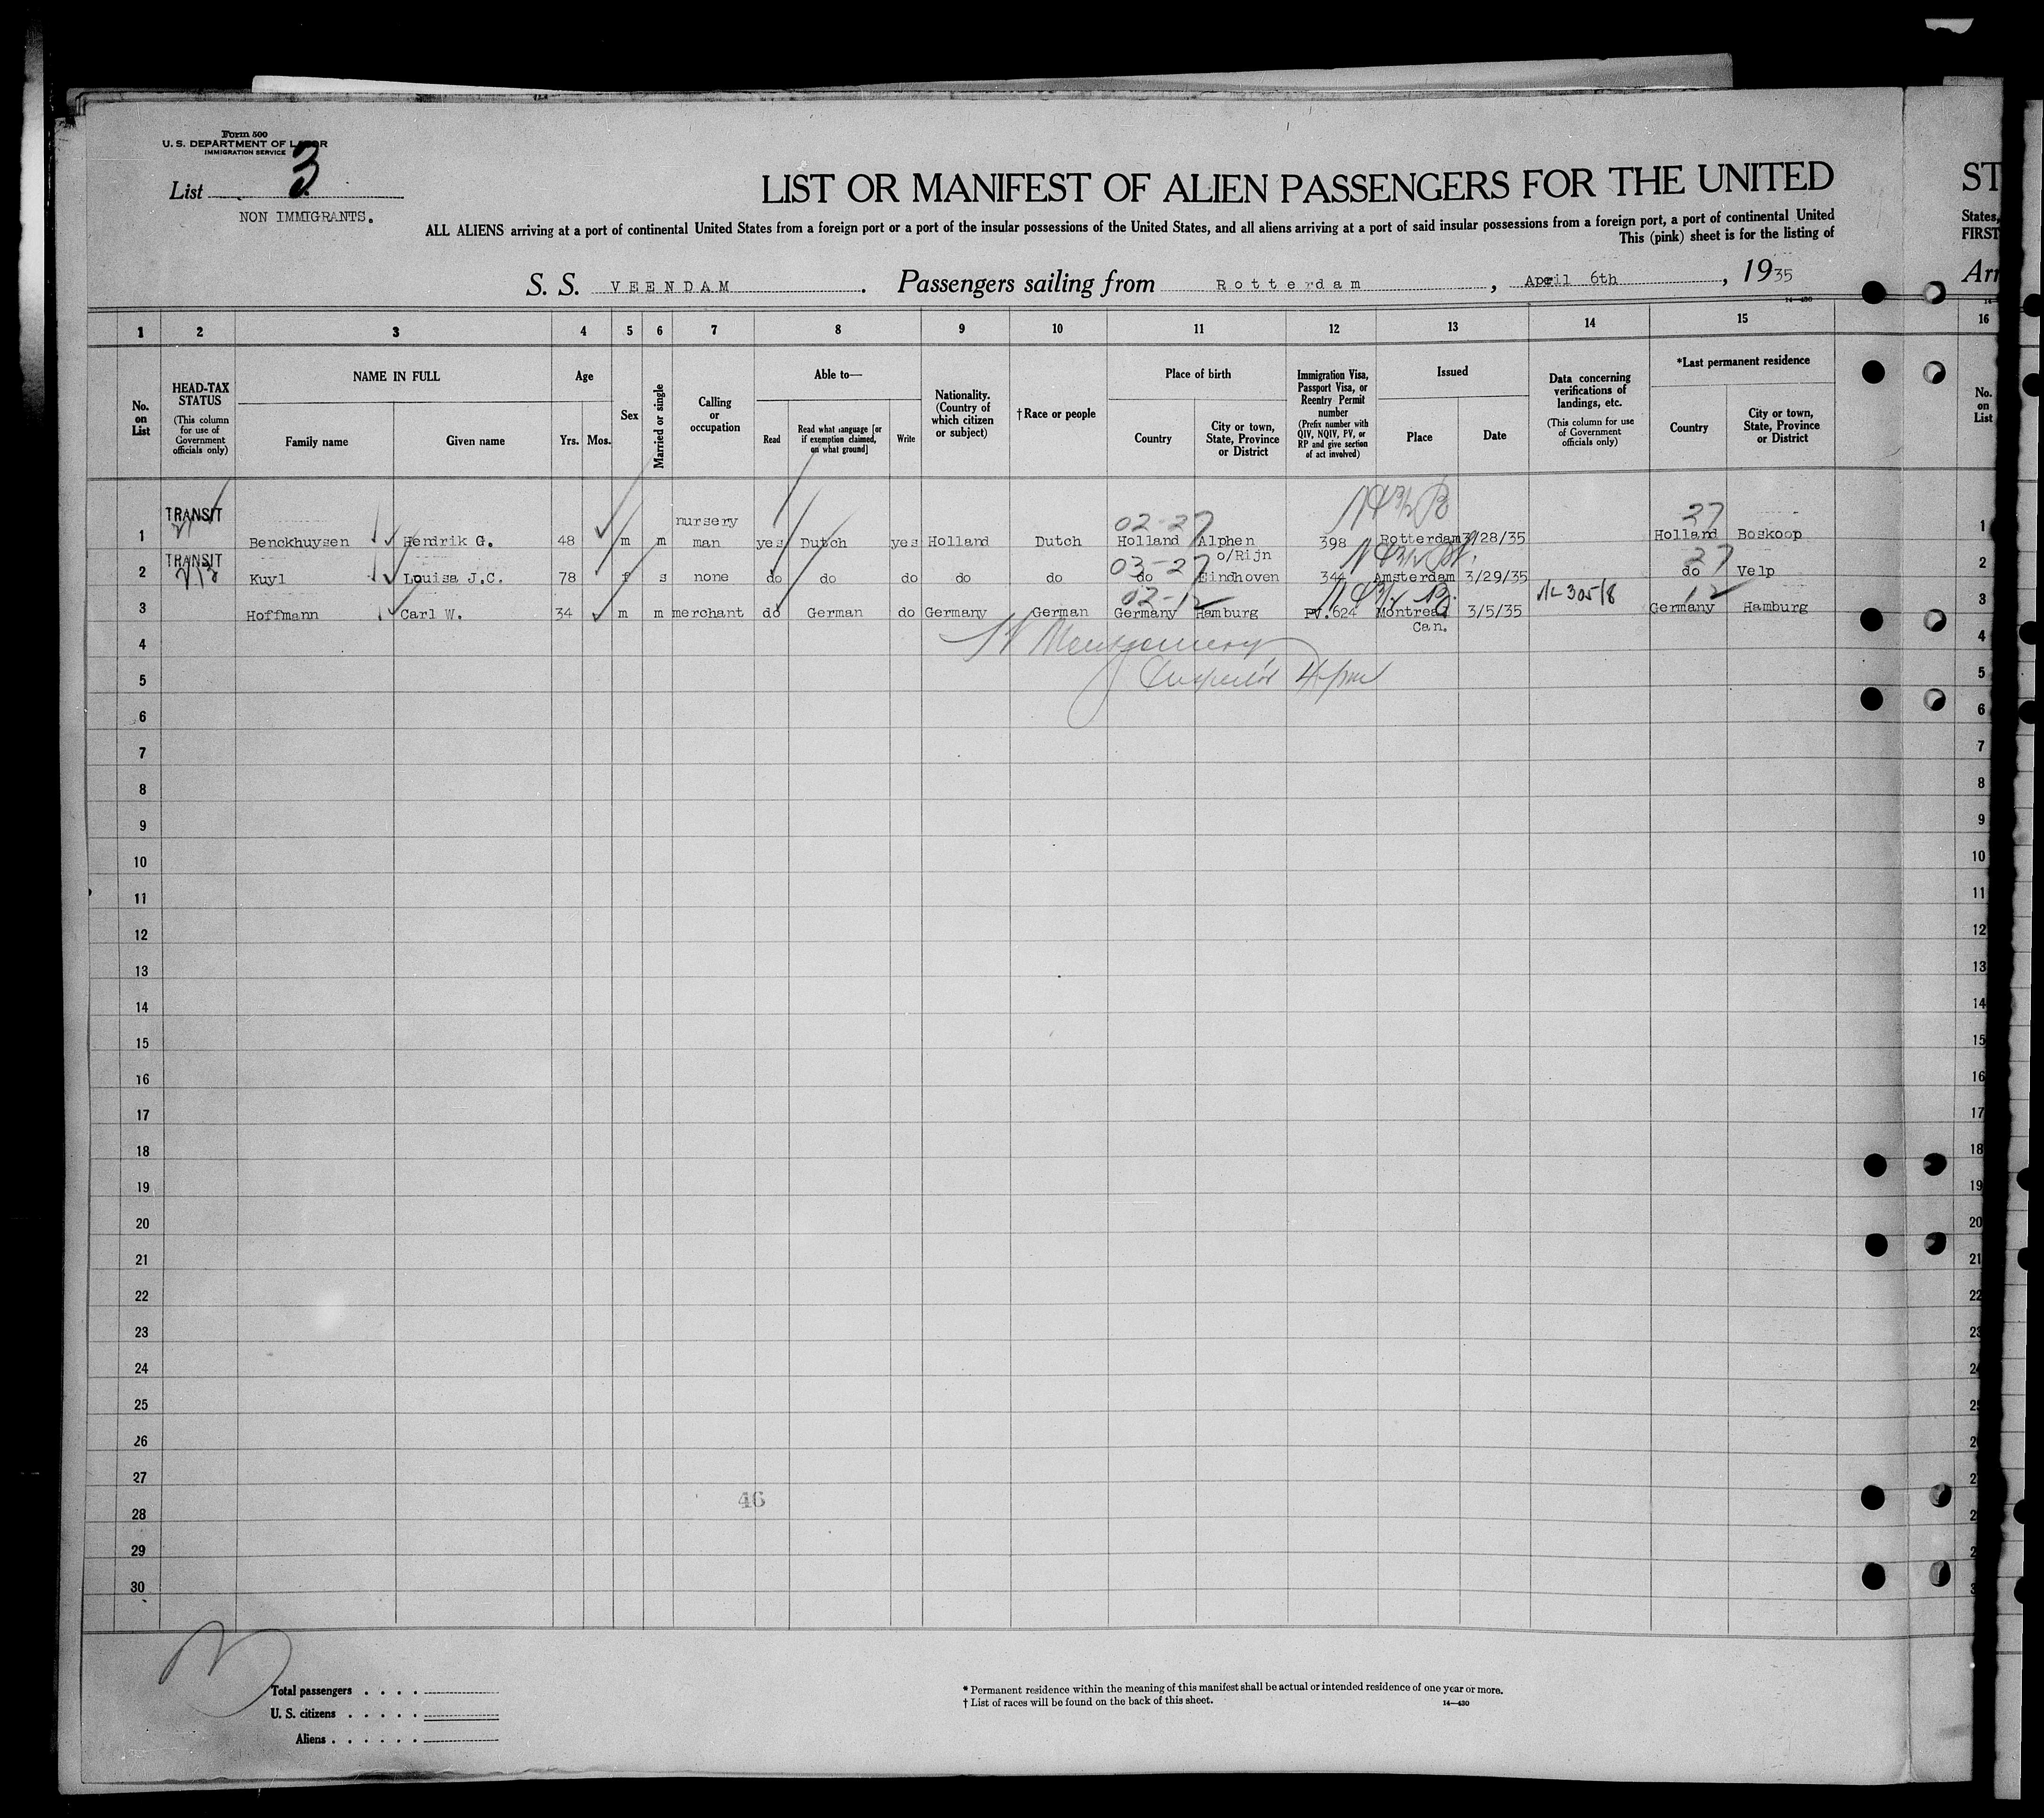 Form 500
U. S. DEPARTMENT OF LABOR
IMMIGRATION SERVICE
List 3
NON IMMIGRANTS.
LIST OR MANIFEST OF ALIEN PASSENGERS FOR THE UNITED
ST
ALL ALIENS arriving at a port of continental United States from a foreign port or a port of the insular possessions of the United States, and all aliens arriving at a port of said insular possessions from a foreign port, a port of continental United
States,
This (pink) sheet is for the listing of
FIRST
S. S. VEENDAM. Passengers sailing from Rotterdam, April 6th, 1935
Arr
14—430
1 2 3 4 5 6 7 8 9 10 11 12 13 14 15 16
No. on List
HEAD-TAX STATUS
(This column for use of Government officials only)
NAME IN FULL
Family name
Given name
Age
Yrs. Mos.
Sex
Married or single
Calling or occupation
Able to—
Read
Read what language [or if exemption claimed, on what ground]
Write
Nationality. (Country of which citizen or subject)
† Race or people
Place of birth
Country
City or town, State, Province or District
Immigration Visa, Passport Visa, or Reentry Permit number
(Prefix number with QIV, NQIV, PV, or RP and give section of act involved)
Issued
Place
Date
Data concerning verifications of landings, etc.
(This column for use of Government officials only)
*Last permanent residence
Country
City or town, State, Province or District
No. on List
TRANSIT nursery 02-27 27
1 Benckhuysen Hendrik G. 48 m m man yes Dutch yes Holland Dutch Holland Alphen 398 Rotterdam 3/28/35 Holland Boskoop 1
TRANSIT 03-27 o/Rijn 27
2 Kuyl Louisa J.C. 78 f s none do do do do do do Eindhoven 344 Amsterdam 3/29/35 do Velp 2
02-12 12
3 Hoffmann Carl W. 34 m m merchant do German do Germany German Germany Hamburg PV.624 Montreal 3/5/35 Germany Hamburg 3
Can.
4 Montgomery 4
5 Inspector 4 pm 5
6 6
7 7
8 8
9 9
10 10
11 11
12 12
13 13
14 14
15 15
16 16
17 17
18 18
19 19
20 20
21 21
22 22
23 23
24 24
25 25
26 26
27 27
46
28
29
30
Total passengers . . . .
U. S. citizens . . . . .
Aliens . . . . . .
* Permanent residence within the meaning of this manifest shall be actual or intended residence of one year or more.
† List of races will be found on the back of this sheet.
14—430